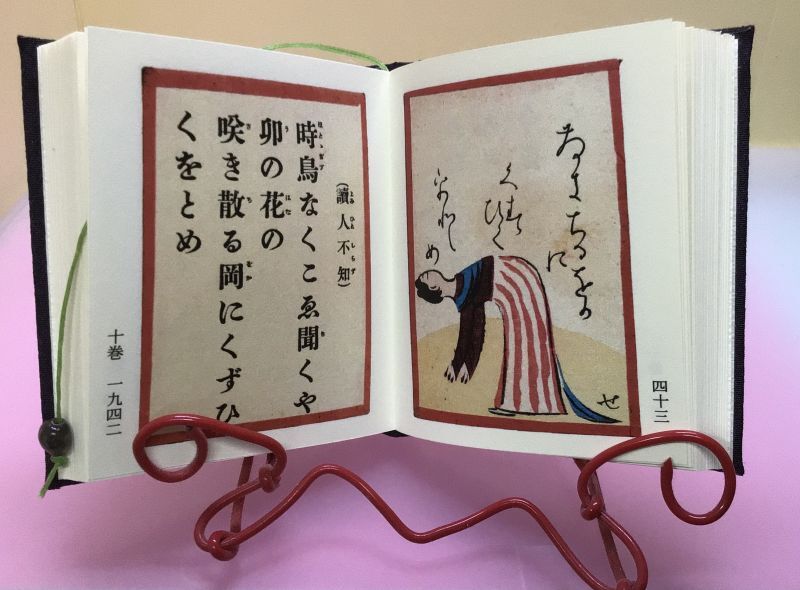 さきちるをかに
くすひく
をとめ
せ
四十三
(讀人不知)
時鳥なくこゑ聞くや
卯の花の
咲き散る岡にくずひ
くをとめ
十巻 一九四二